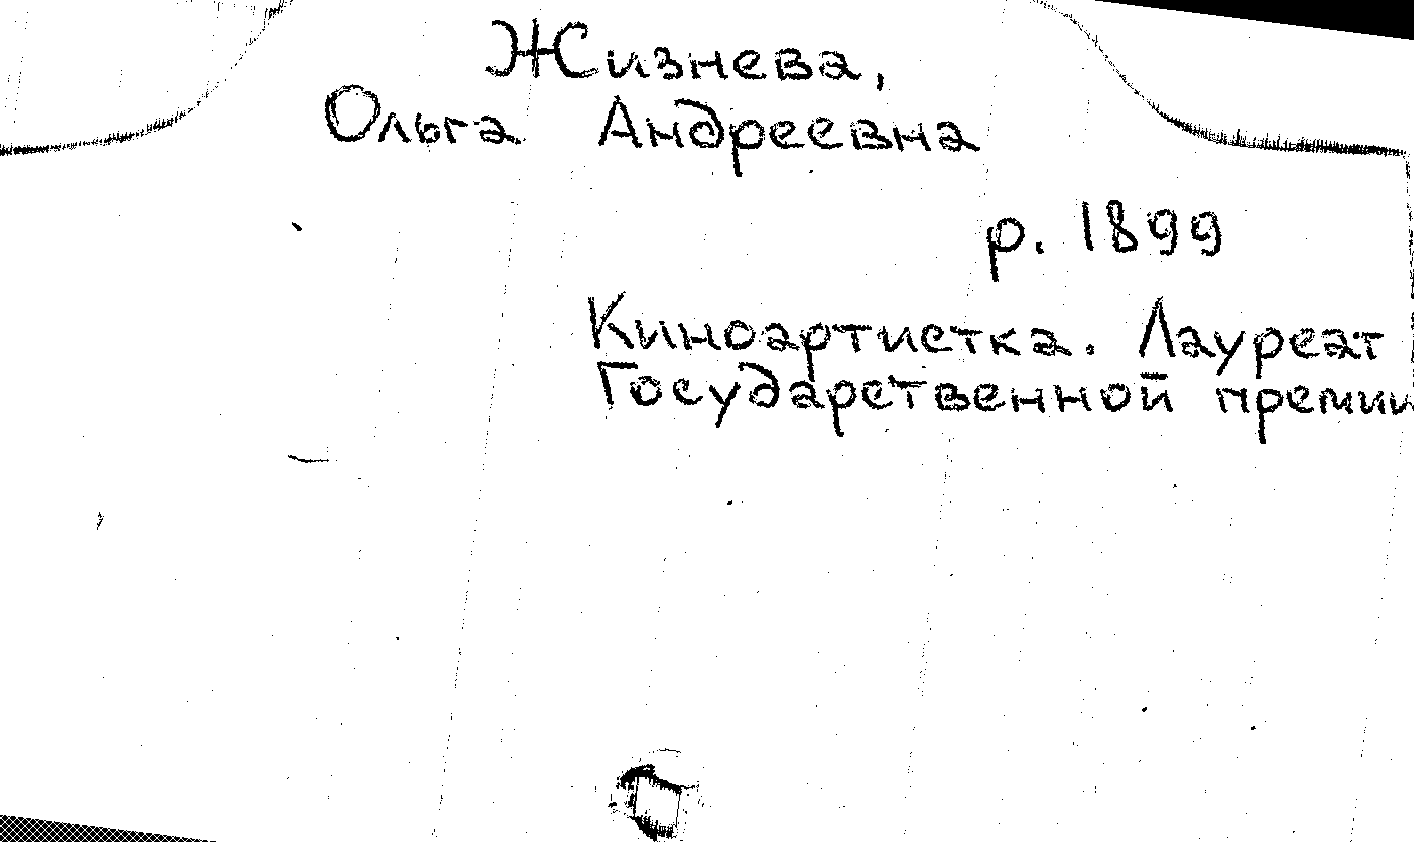 Жизнева,
Ольга Андреевна
р. 1899
Киноартистка. Лауреат
Государственной премии